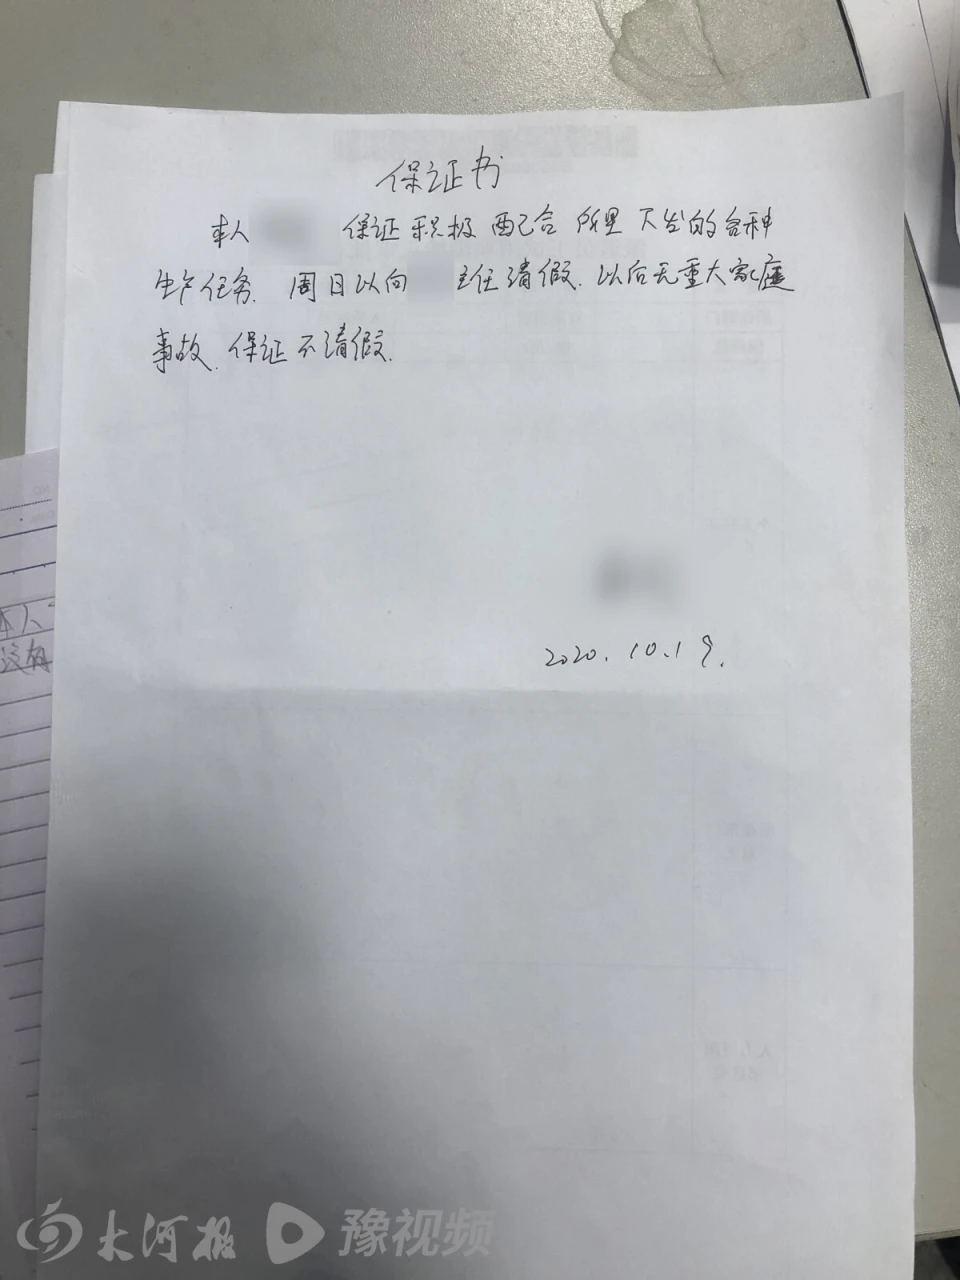 保证书
本人 保证积极配合所里下发的各种
生产任务. 周日以向 主任请假. 以后无重大家庭
事故. 保证不请假.
2020. 10. 19.
本人
没有
大河报 豫视频